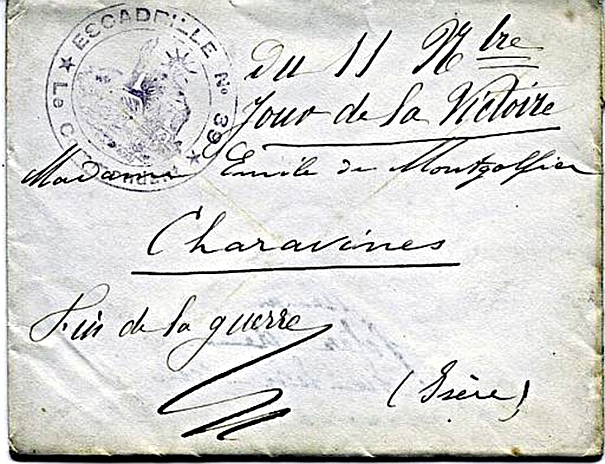 ESCADRILLE No 39
Du 11 Nbre
Jour de la Victoire
Madame Emile de Montgolfier
Charavines
Fin de la guerre
(Isère)